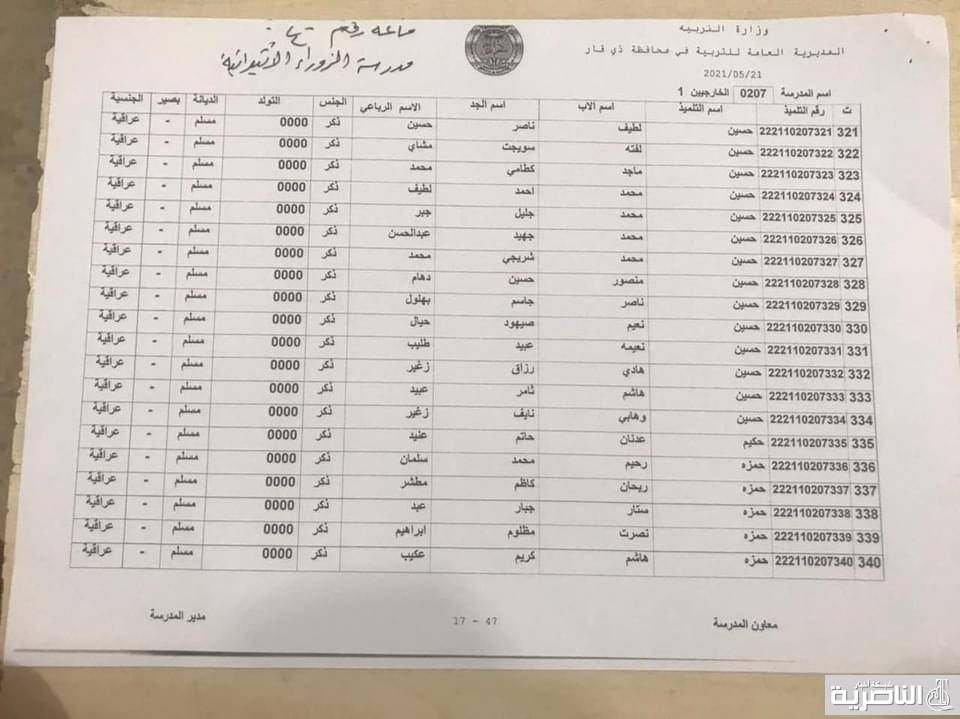 وزارة التربيه
المديرية العامة للتربية في محافظة ذي قار
2021/05/21
مدرسة الزوراء الابتدائية
اسم المدرسة 0207 الخارجيين 1
ت رقم التلميذ اسم التلميذ اسم الاب اسم الجد الاسم الرباعي الجنس التولد الديانة بصير الجنسية
321 222110207321 حسين لطيف ناصر حسين ذكر 0000 مسلم - عراقية
322 222110207322 حسين لفته سويجت مشاي ذكر 0000 مسلم - عراقية
323 222110207323 حسين ماجد كطامي محمد ذكر 0000 مسلم - عراقية
324 222110207324 حسين محمد احمد لطيف ذكر 0000 مسلم - عراقية
325 222110207325 حسين محمد جليل جبر ذكر 0000 مسلم - عراقية
326 222110207326 حسين محمد جهيد عبدالحسن ذكر 0000 مسلم - عراقية
327 222110207327 حسين محمد شريجي محمد ذكر 0000 مسلم - عراقية
328 222110207328 حسين منصور حسين دهام ذكر 0000 مسلم - عراقية
329 222110207329 حسين ناصر جاسم بهلول ذكر 0000 مسلم - عراقية
330 222110207330 حسين نعيم صيهود حيال ذكر 0000 مسلم - عراقية
331 222110207331 حسين نعيمه عبيد طليب ذكر 0000 مسلم - عراقية
332 222110207332 حسين هادي رزاق زغير ذكر 0000 مسلم - عراقية
333 222110207333 حسين هاشم ثامر عبيد ذكر 0000 مسلم - عراقية
334 222110207334 حسين وهابي نايف زغير ذكر 0000 مسلم - عراقية
335 222110207335 حكيم عدنان حاتم عنيد ذكر 0000 مسلم - عراقية
336 222110207336 حمزه رحيم محمد سلمان ذكر 0000 مسلم - عراقية
337 222110207337 حمزه ريحان كاظم مطشر ذكر 0000 مسلم - عراقية
338 222110207338 حمزه ستار جبار عبد ذكر 0000 مسلم - عراقية
339 222110207339 حمزه نصرت مظلوم ابراهيم ذكر 0000 مسلم - عراقية
340 222110207340 حمزه هاشم كريم عكيب ذكر 0000 مسلم - عراقية
معاون المدرسة 17 - 47 مدير المدرسة
شبكة أخبار
الناصرية